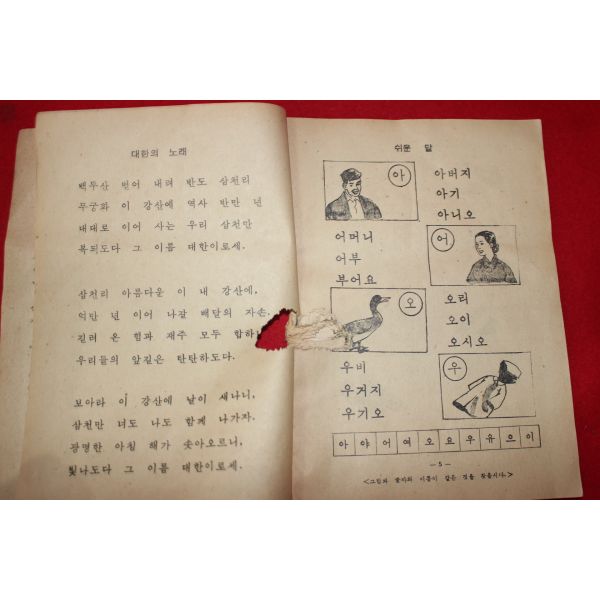 대한의 노래
백두산 벋어 내려 반도 삼천리
무궁화 이 강산에 역사 반만 년
대대로 이어 사는 우리 삼천만
복되도다 그 이름 대한이로세.
삼천리 아름다운 이 내 강산에,
억만 년 이어 나갈 배달의 자손,
길러 온 힘과 재주 모두 합하니
우리들의 앞길은 탄탄하도다.
보아라 이 강산에 날이 새나니,
삼천만 너도 나도 함께 나가자.
광명한 아침 해가 솟아오르니,
빛나도다 그 이름 대한이로세.
쉬운 말
아
아버지
아기
아니오
어머니
어부
부어요
어
오
오리
오이
오시오
우비
우거지
우기오
우
아 야 어 여 오 요 우 유 으 이
— 5 —
<그림과 글자의 이름이 같은 것을 찾읍시다.>